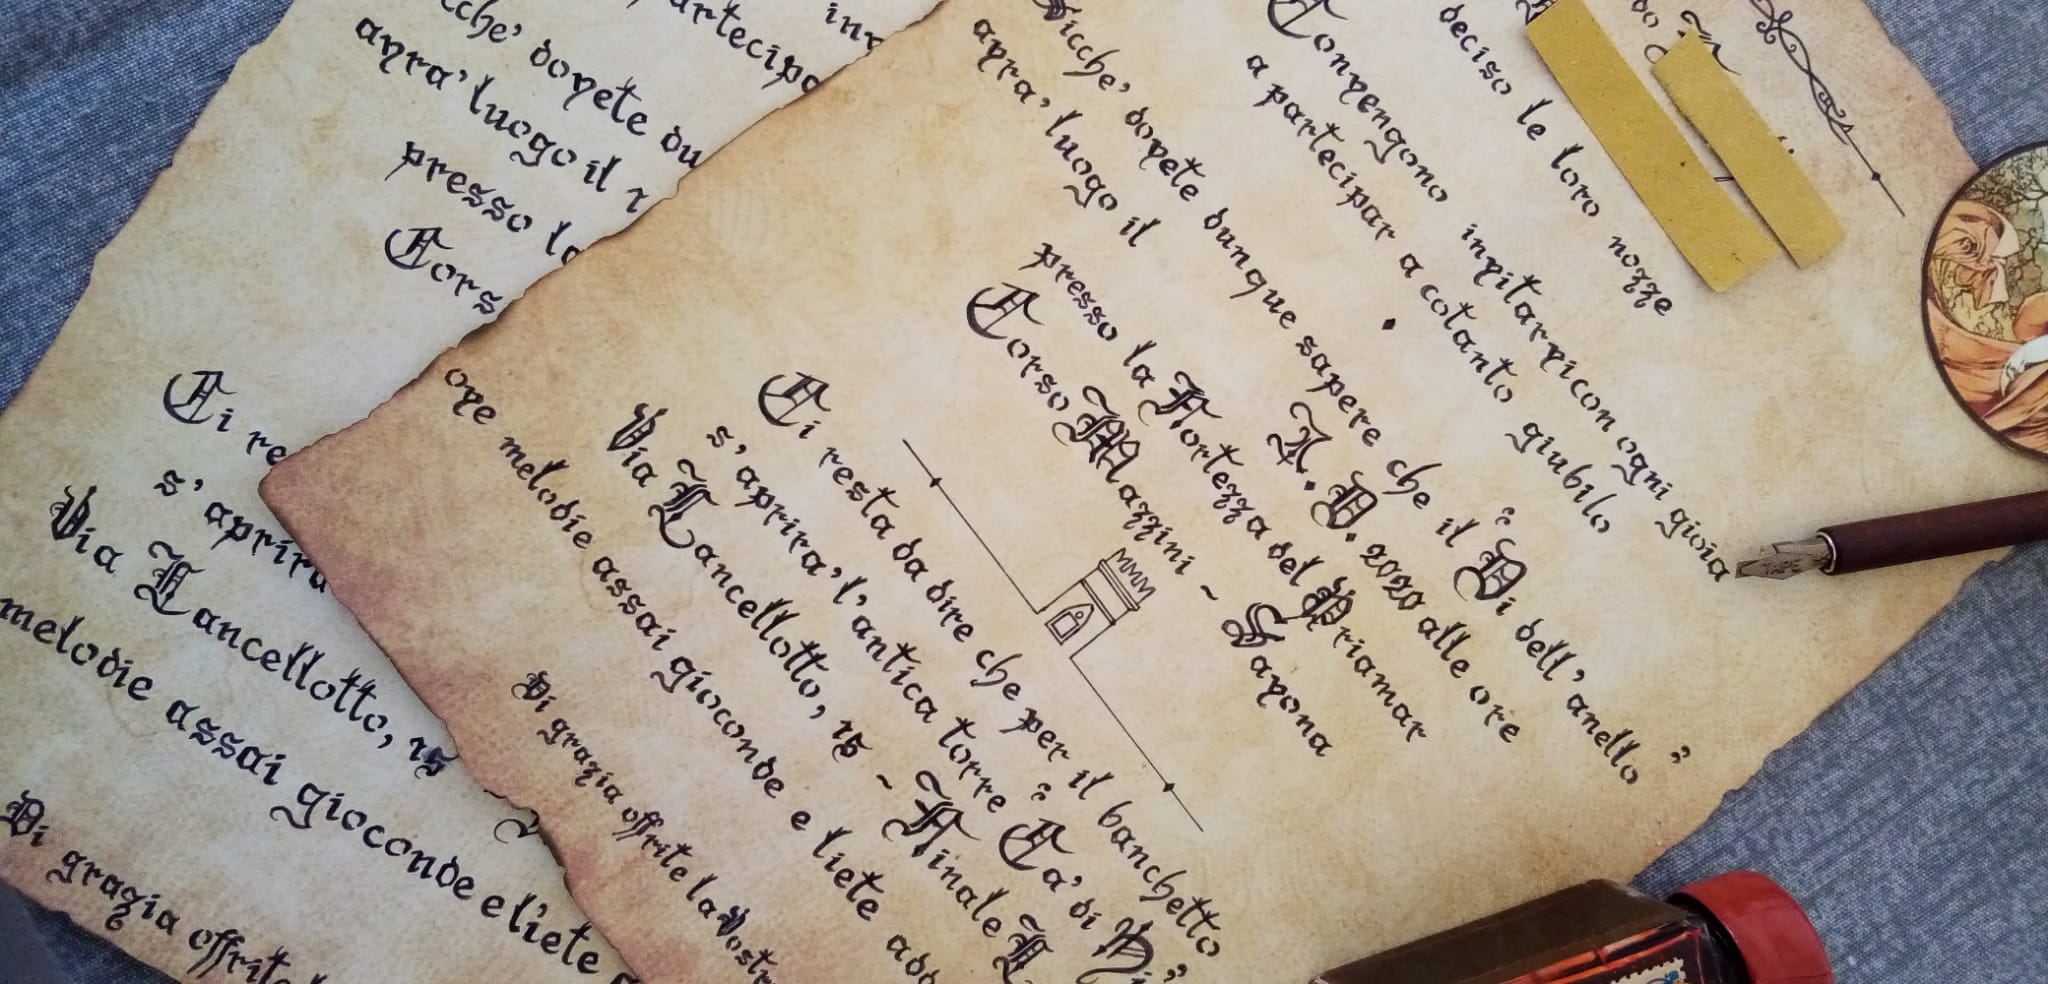 deciso le loro nozze
Convengono invitarvi con ogni gioia
a partecipar a cotanto giubilo
Sicche' dovete dunque sapere che il "Di dell'anello"
avra' luogo il A.D. 2020 alle ore
presso la Fortezza del Priamar
Corso Mazzini ~ Savona
Ci resta da dire che per il banchetto
s'aprira' l'antica torre "Ca' di
Via Lancellotto, 15 ~ Finale
ove melodie assai gioconde e liete
Di grazia offrite la
partecipa
cche' dovete du
avra' luogo il
presso la
Cors
Ci re
s'aprira
Via Lancellotto, 15
melodie assai gioconde e liete
Di grazia offrite
TAPE